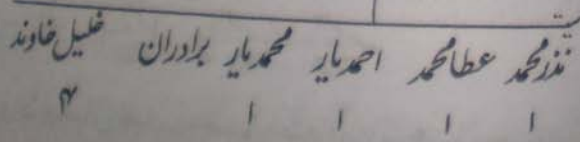 نذر محمد عطا محمد احمد یار محمد یار برادران خلیل خاوند
۱ ۱ ۱ ۱ ۴